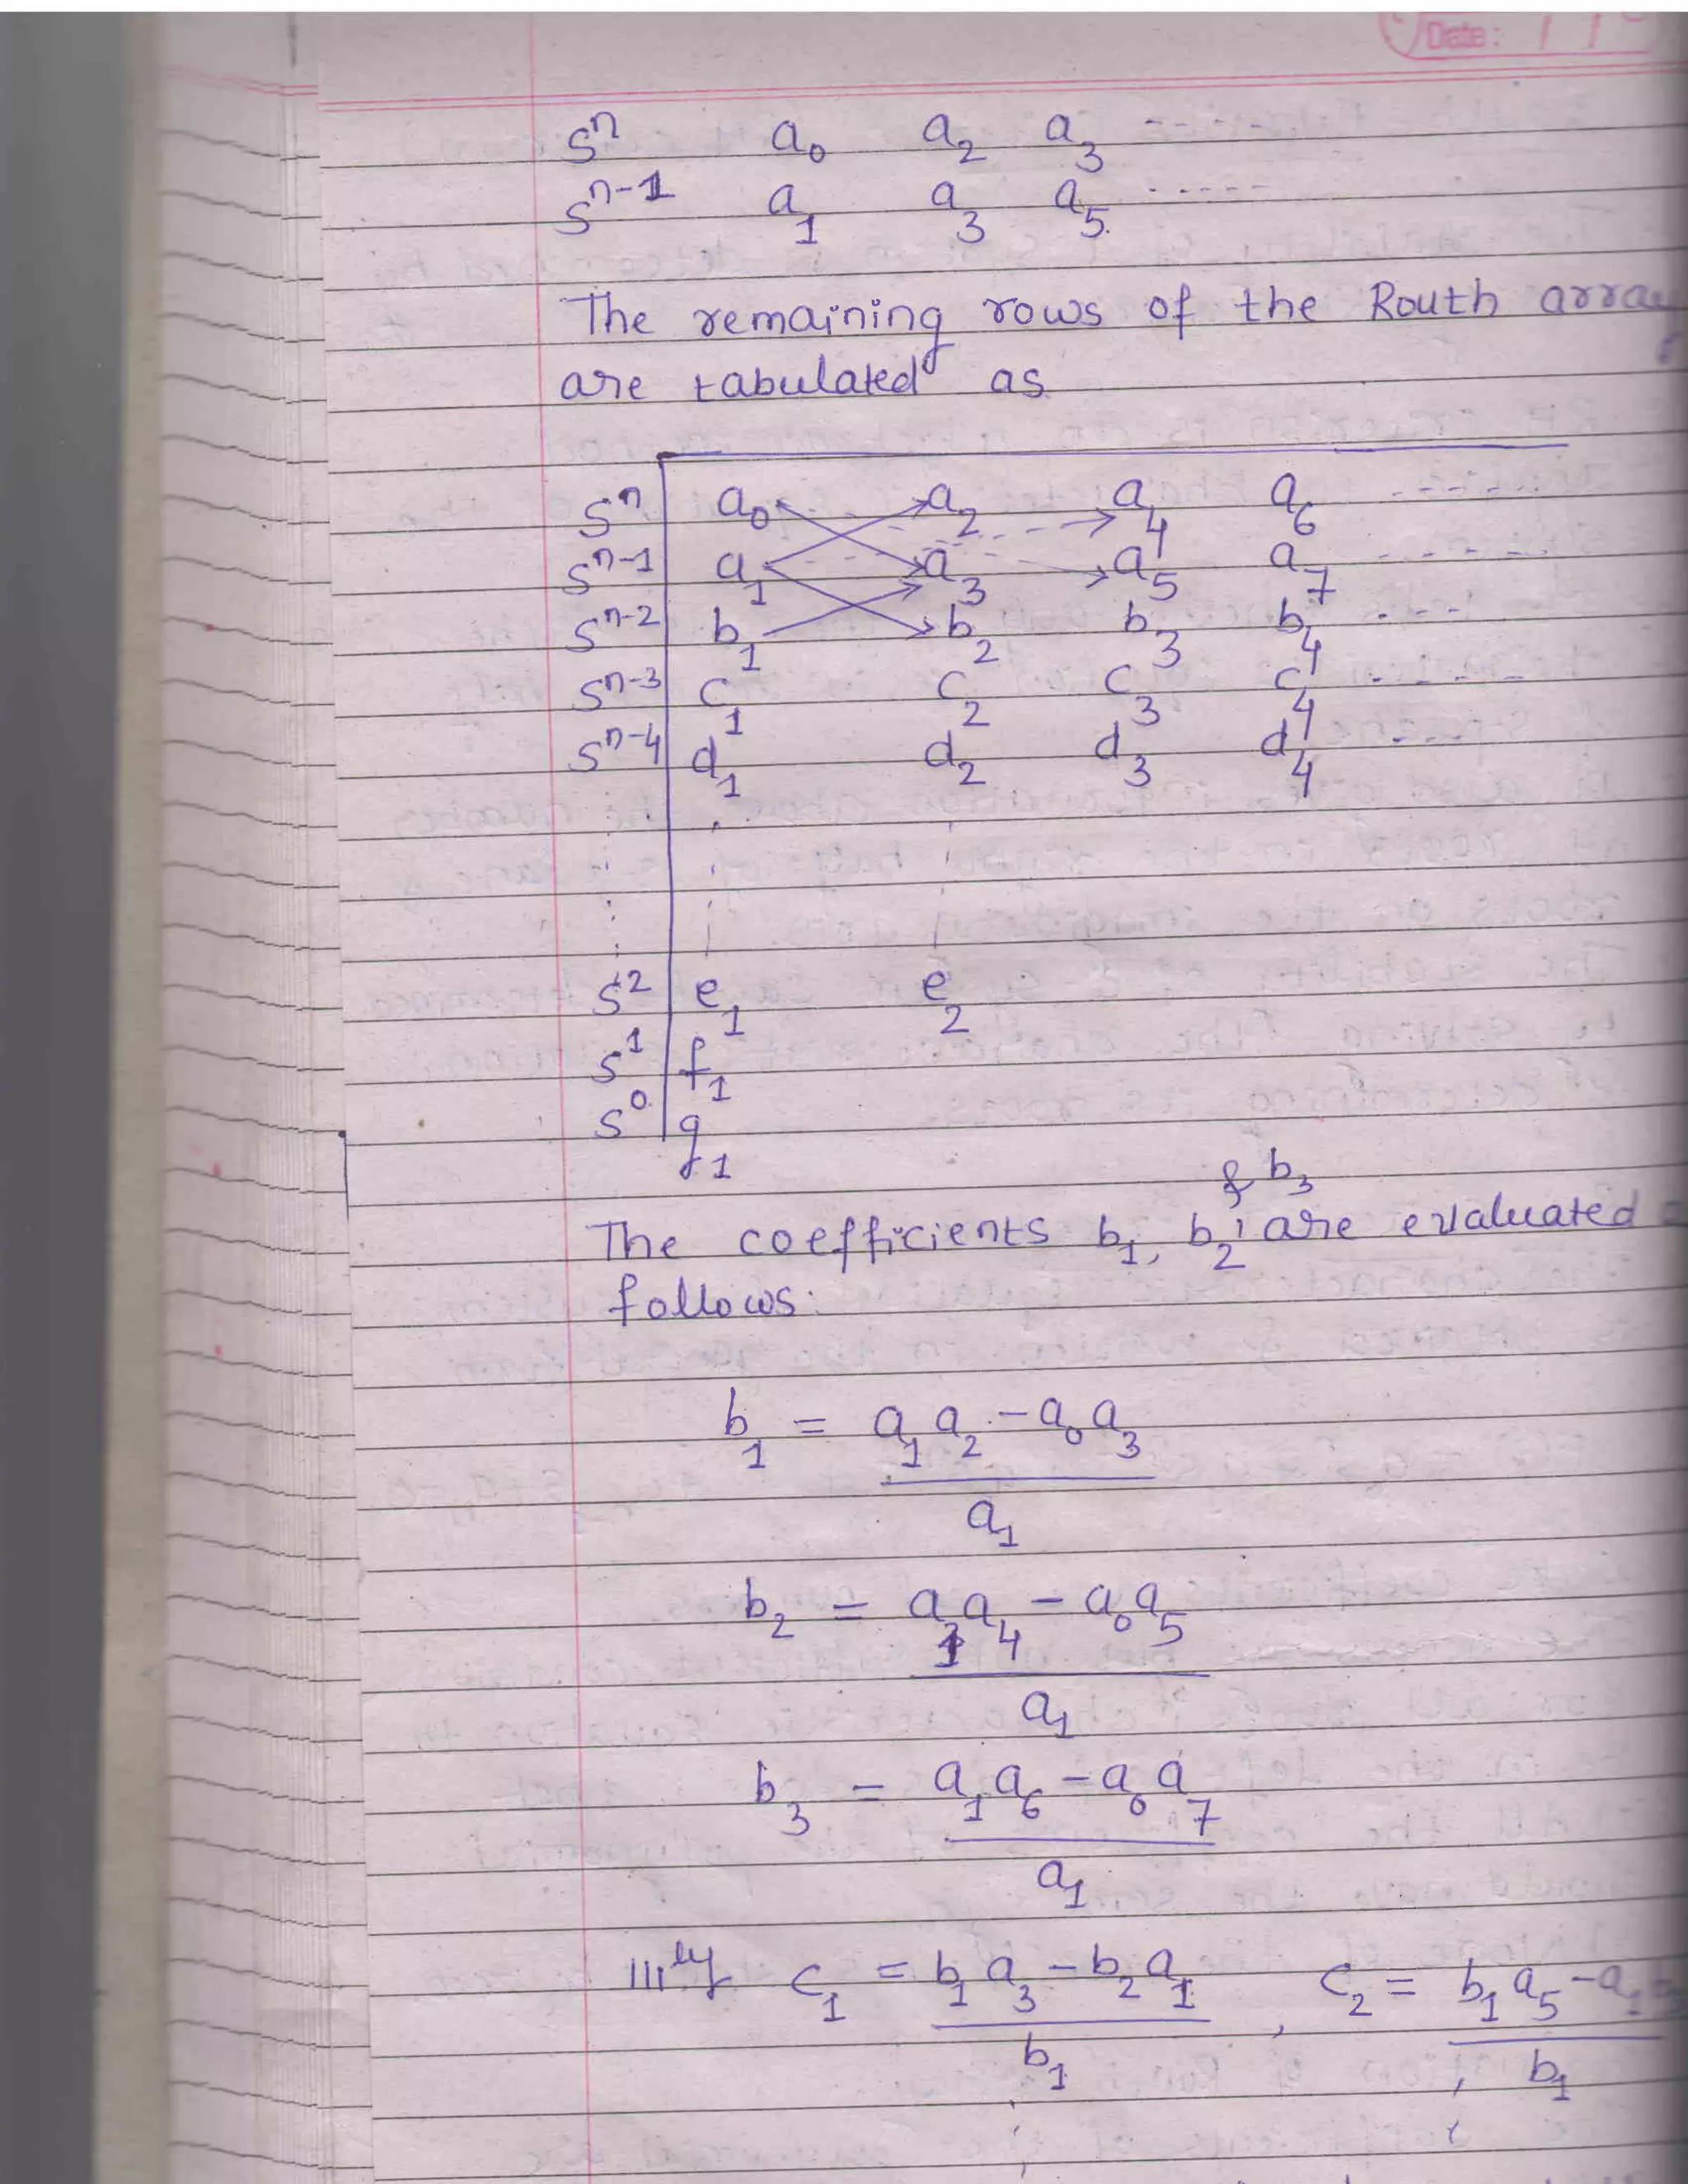 Date:
s^n a_0 a_2 a_3 -----
s^{n-1} a_1 a_3 a_5 -----
The remaining rows of the Routh array
are tabulated as
s^n a_0 a_2 a_4 a_6 -----
s^{n-1} a_1 a_3 a_5 a_7 -----
s^{n-2} b_1 b_2 b_3 b_4 ----
s^{n-3} c_1 c_2 c_3 c_4 -----
s^{n-4} d_1 d_2 d_3 d_4 ----
s^2 e_1 e_2
s^1 f_1
s^0 g_1
The coefficients b_1, b_2, & b_3 are evaluated
follows:
b_1 = a_1 a_2 - a_0 a_3
a_1
b_2 = a_1 a_4 - a_0 a_5
a_1
b_3 = a_1 a_6 - a_0 a_7
a_1
|||ly c_1 = b_1 a_3 - b_2 a_1 , c_2 = b_1 a_5 - a_1
b_1 b_1